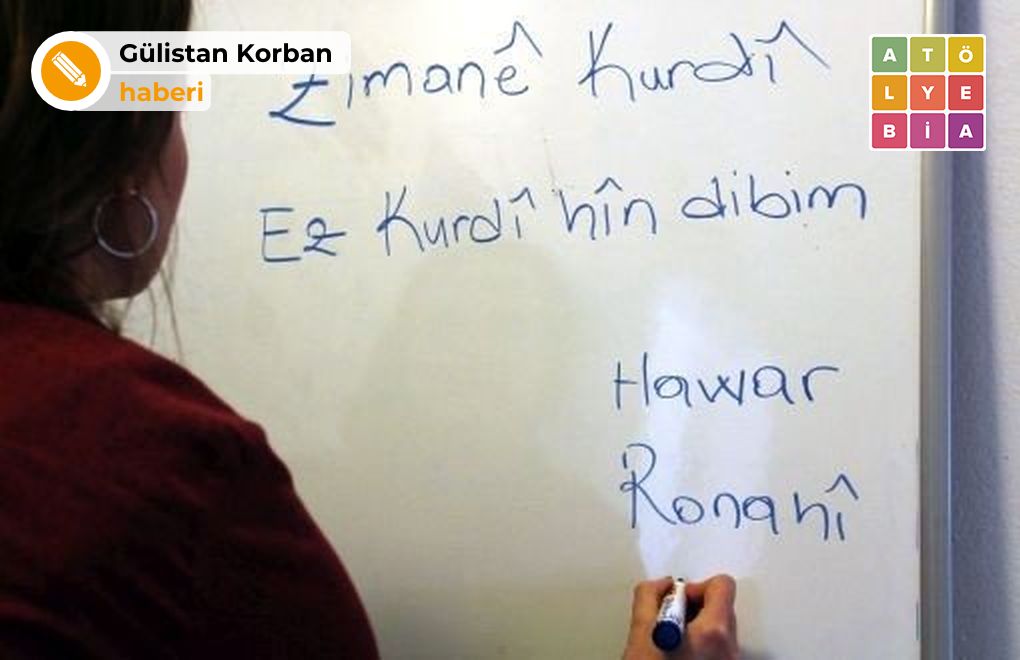 Gülistan Korban
haberi
A T Ö
L Y E
B İ A
Zimanê Kurdî
Ez Kurdî hîn dibim
Hawar
Ronahî